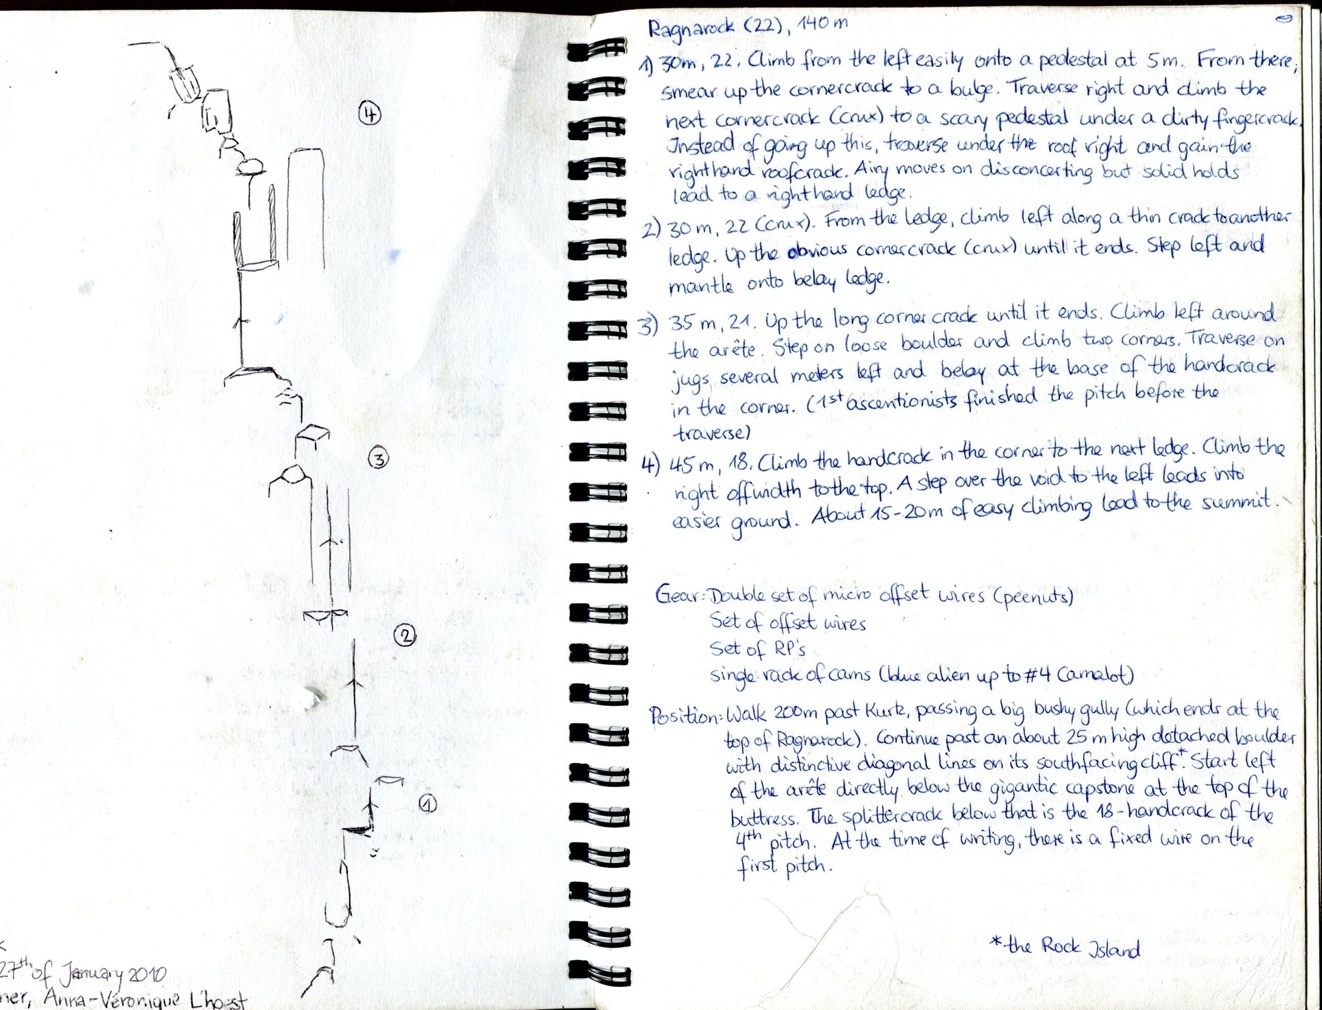 4
3
2
1
27th of January 2010
ner, Anna-Véronique L'hoest
Ragnarock (22), 140m
1) 30m, 22. Climb from the left easily onto a pedestal at 5m. From there,
smear up the cornercrack to a bulge. Traverse right and climb the
next cornercrack (crux) to a scary pedestal under a dirty fingercrack.
Instead of going up this, traverse under the roof right and gain the
righthand roofcrack. Airy moves on disconcerting but solid holds
lead to a righthand ledge.
2) 30m, 22 (crux). From the ledge, climb left along a thin crack to another
ledge. Up the obvious cornercrack (crux) until it ends. Step left and
mantle onto belay ledge.
3) 35m, 21. Up the long corner crack until it ends. Climb left around
the arête. Step on loose boulder and climb two corners. Traverse on
jugs several meters left and belay at the base of the handcrack
in the corner. (1st ascentionists finished the pitch before the
traverse)
4) 45m, 18. Climb the handcrack in the corner to the next ledge. Climb the
right offwidth to the top. A step over the void to the left leads into
easier ground. About 15-20m of easy climbing lead to the summit.
Gear: Double set of micro offset wires (peenuts)
Set of offset wires
Set of RP's
single rack of cams (blue alien up to #4 Camalot)
Position: Walk 200m past Kurtz, passing a big bushy gully (which ends at the
top of Ragnarock). Continue past an about 25m high detached boulder
with distinctive diagonal lines on its southfacing cliff*. Start left
of the arête directly below the gigantic capstone at the top of the
buttress. The splittercrack below that is the 18-handcrack of the
4th pitch. At the time of writing, there is a fixed wire on the
first pitch.
*the Rock Island